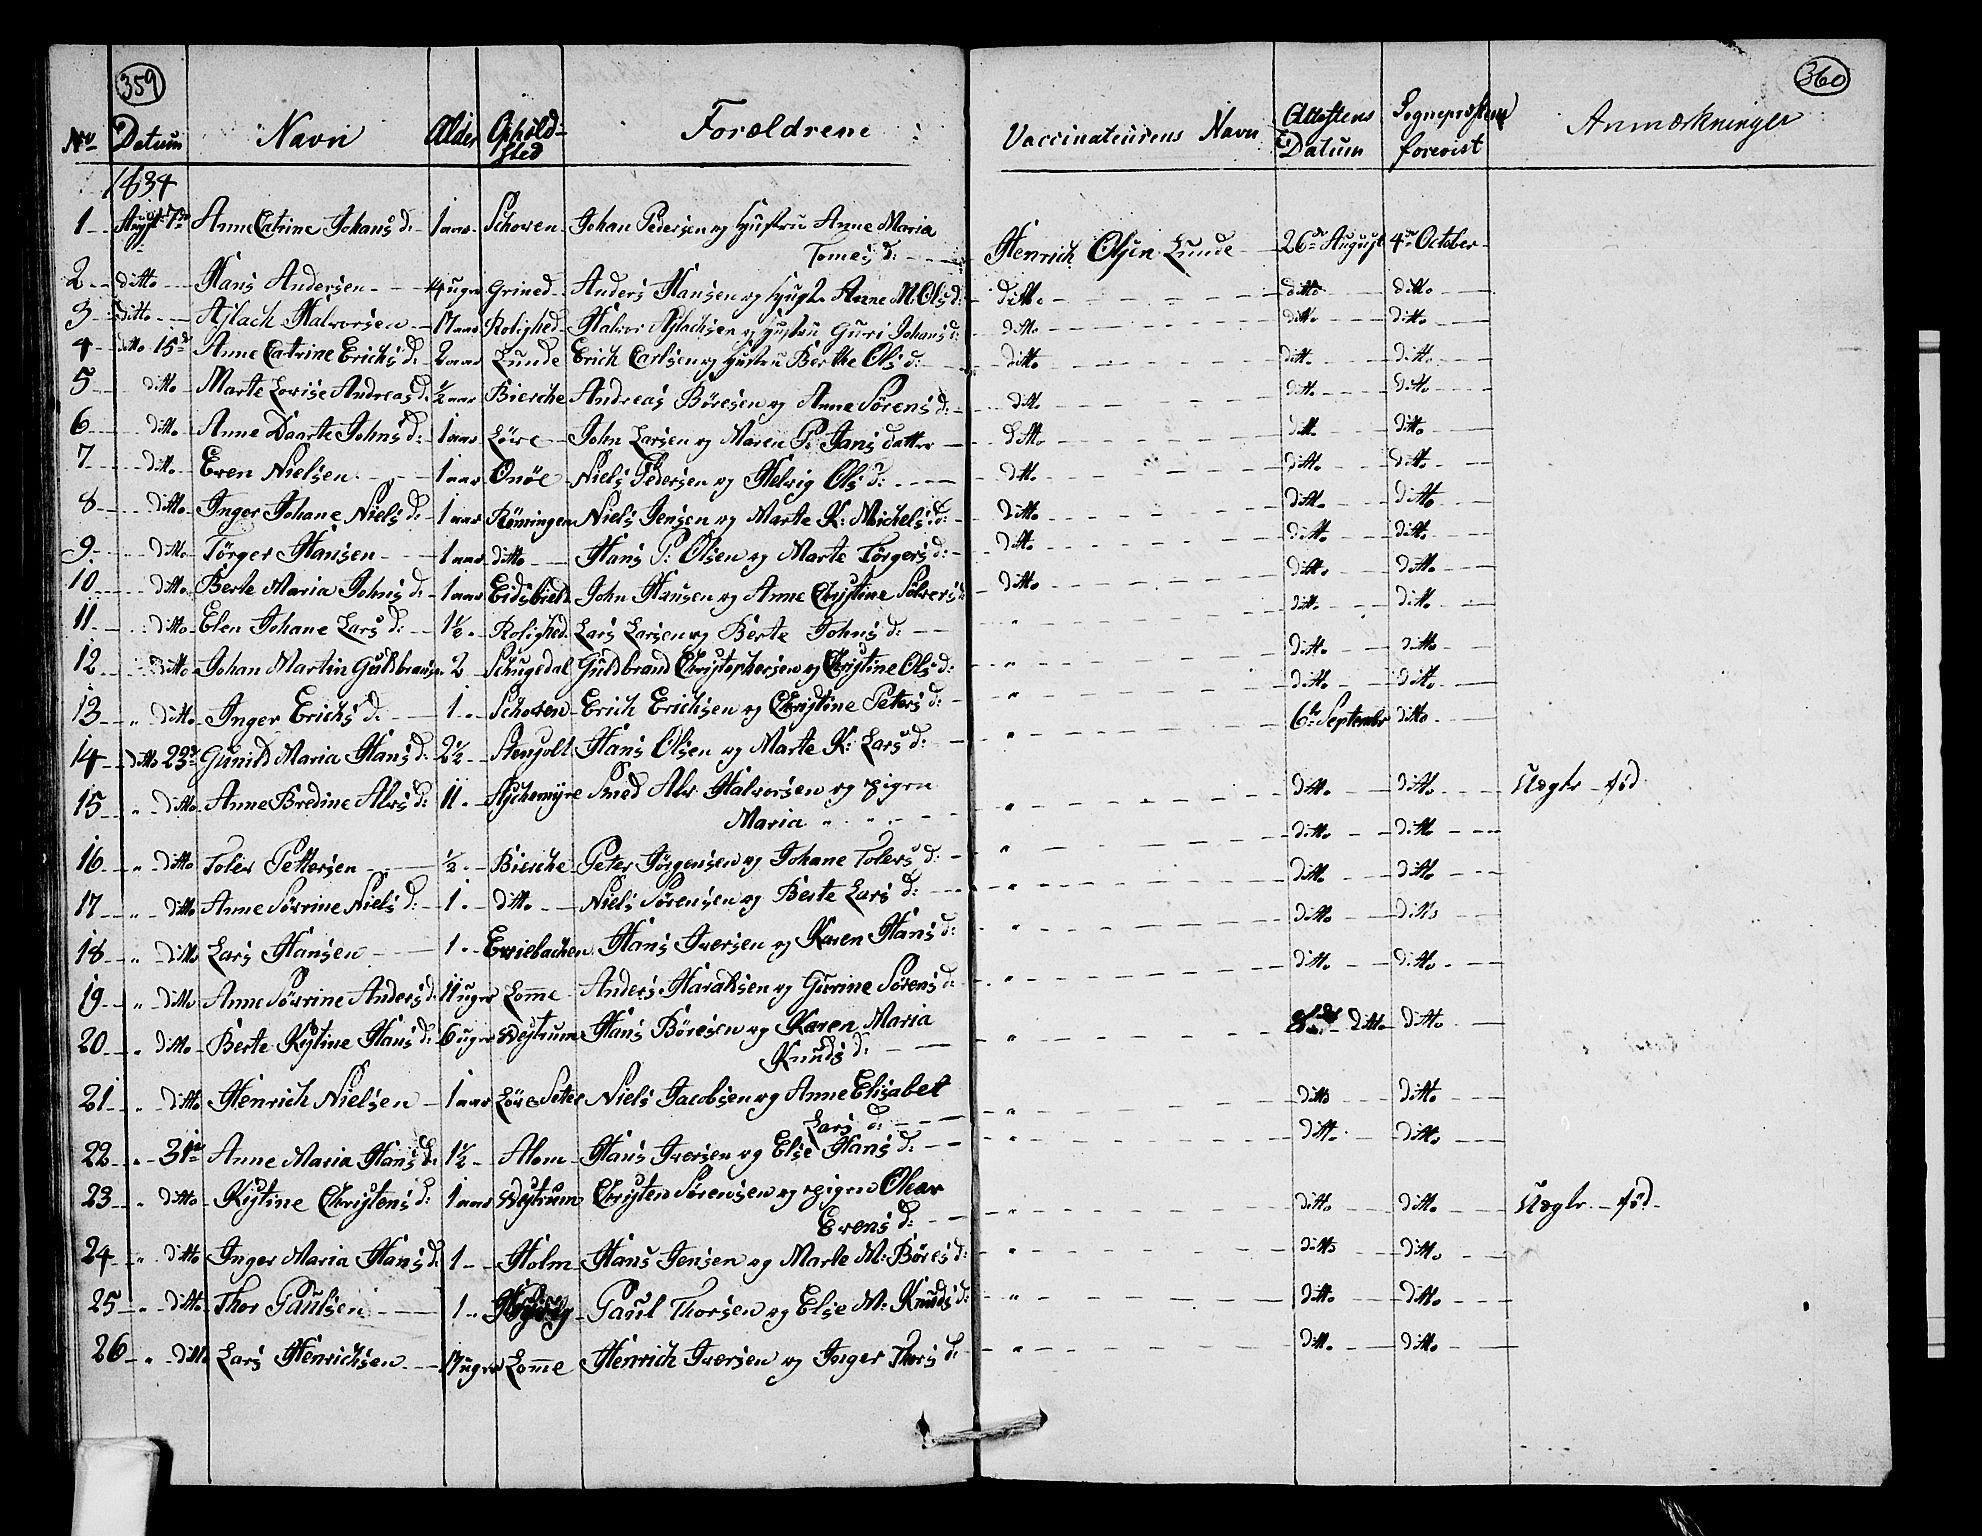 359
360
No Datum Navn Alder Opholdsted Forældrene Vaccinateurens Navn Attestens Datum Sognepræsten forevist Anmærkninger
1834
1 August 7de Anne Catrine Johans d: 1 aar Schoven Johan Pedersen og Hustru Anne Maria Tomes d: Henrich Olsen Lunde 26de August 4de October
2 ditto Hans Andersen 4 uger Grined Anders Hansen og Hust: Anne M. Ols d: ditto ditto ditto
3 ditto Aslach Halvorsen 17 aar Rolighed Halvor Aslachsen og Hustru Gurri Johans d: ditto ditto ditto
4 ditto 15de Anne Catrine Erichs d: 2 aar Lunde Erich Carlsen og Hustru Berthe Ols d: ditto ditto ditto
5 ditto Marte Lovise Andreas d: ½ aar Bierche Andreas Børesen og Anne Sørens d: ditto ditto ditto
6 ditto Anne Daarte Johns d: 1 aar Løve John Larsen og Maren P: Jans datter ditto ditto ditto
7 ditto Even Nielsen 1 aar Onøe Niels Pedersen og Helvig Ols d: ditto ditto ditto
8 ditto Inger Johane Niels d: 1 aar Rønningen Niels Jensen og Marte K: Michels d: ditto ditto ditto
9 ditto Tørger Hansen 1 aar ditto Hans P: Olsen og Marte Tørgers d: ditto ditto ditto
10 ditto Berte Maria Johns d: 1 aar Eidsbield John Hansen og Anne Christine Sølvers d: ditto ditto ditto
11 ditto Elen Johane Lars d: 1½ Rolighed Lars Larsen og Berte Johns d: " ditto ditto
12 ditto Johan Martin Guldbrands: 2 Schugedal Guldbrand Christophersen og Christine Ols d: " ditto ditto
13 " ditto Inger Erichs d: 1 Schoven Erich Erichsen og Christine Peters d: " ditto ditto
14 ditto 23de Gunild Maria Hans d: 2½ Stenzolt Hans Olsen og Marte K: Lars d: " 6te September ditto
15 " ditto Anne Bredine Alvs d: 11 Aschemyre Smed Alv Halvorsen og pigen Maria " " " ditto ditto Uægte fød
16 " ditto Toler Pettersen ½ Bierche Peter Jørgensen og Johane Tolers d: " ditto ditto
17 " ditto Anne Sørrine Niels d: 1 ditto Niels Sørensen og Berte Lars d: " ditto ditto
18 " ditto Lars Hansen 1 Evriebachen Hans Iversen og Karen Hans d: " ditto ditto
19 " ditto Anne Sørrine Anders d: 11 uger Lomme Anders Haraldsen og Gurine Sørens d: " ditto ditto
20 " ditto Berte Kistine Hans d: 6 uger Westrum Hans Børesen og Karen Maria Knuds d: " 8de ditto ditto
21 " ditto Henrich Nielsen 1 aar Løve Seter Niels Jacobsen og Anne Elisabet Lars d: " ditto ditto
22 " 31te Anne Maria Hans d: 1½ Alom Hans Iversen og Else Hans d: " ditto ditto
23 " ditto Kistine Christens d: 1 aar Westrum Christen Sørensen og pigen Olea Evens d: " ditto ditto Uægte fød
24 " ditto Inger Maria Hans d: 1 Holm Hans Jensen og Marte M: Børes d: " ditto ditto
25 " ditto Thor Paulsen 1 Paul Thorsen og Else M: Knuds d: " ditto ditto
26 " ditto Lars Henrichsen 17 uger Lomme Henrich Iversen og Inger Thors d: " ditto ditto